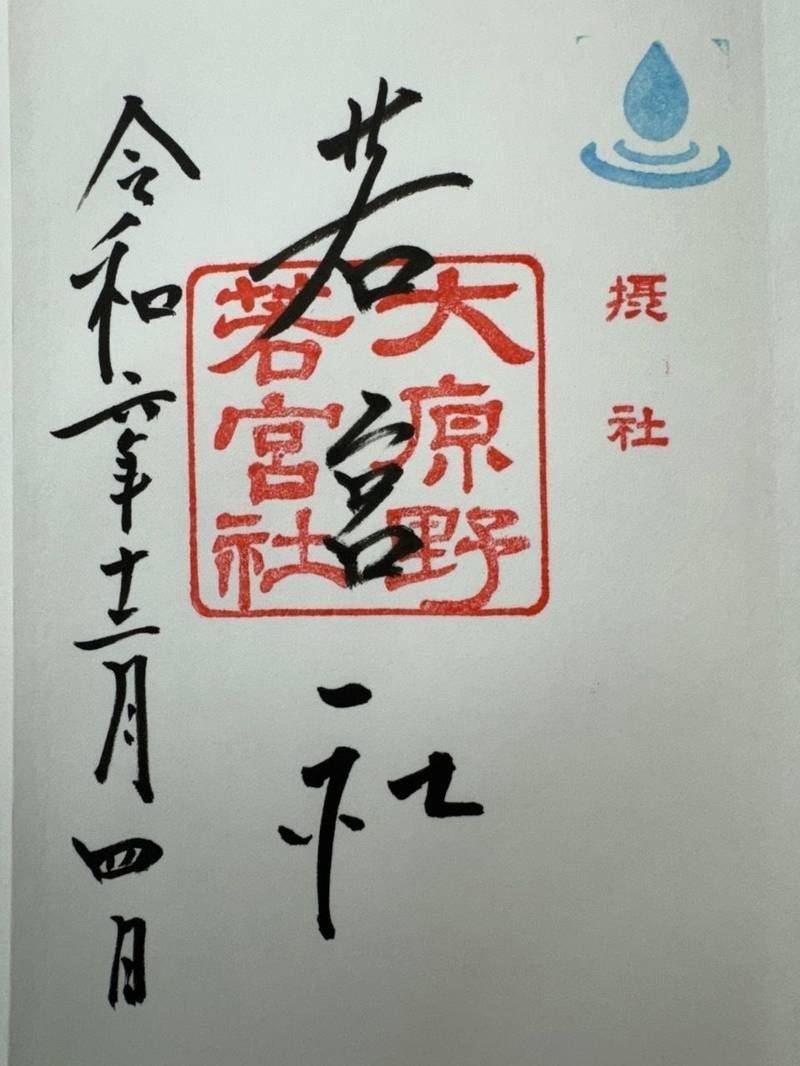 摂社
若宮社
大原野
若宮社
令和六年十二月四日